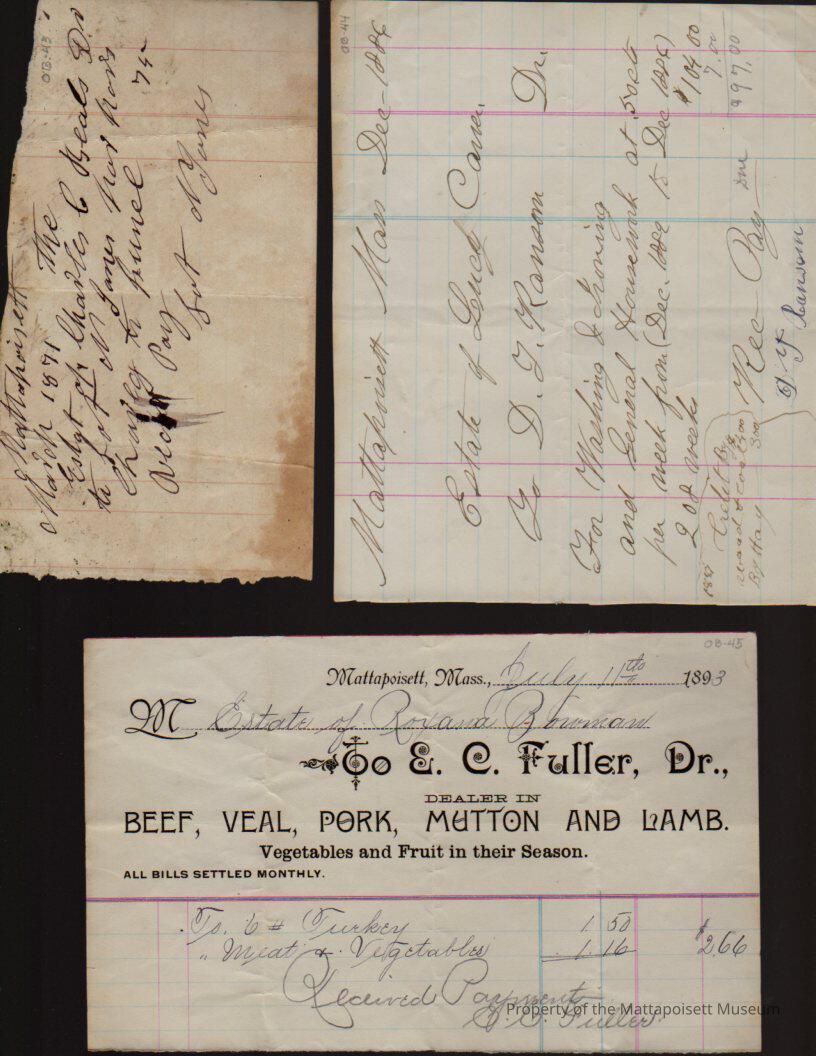 OB-43
Mattapoisett
March 1871 The
Estat of Charles C Beals Dr
to Lot N Jones
to funel 75
Recd Pay
Lot N Jones
OB-44
Mattapoisett Mass Dec-1886
Estate of Lucy Cane.
To D. T. Ransom Dr.
For Washing & Ironing
and General Housework at .50cts
per week from (Dec. 1882 to Dec 1886)
208 weeks $104.00
Credit By 7.00
wood & coal 4.00
By Hay 3.00
Due $97.00
Rec Pay
D T Ransom
OB-45
Mattapoisett, Mass., July 11th 1893
M Estate of Roxana Bowman
To E. C. Fuller, Dr.,
DEALER IN
BEEF, VEAL, PORK, MUTTON AND LAMB.
Vegetables and Fruit in their Season.
ALL BILLS SETTLED MONTHLY.
To. 6 # Turkey 1.50
" Meat & Vegetables 1.16 $2.66
Received Payment
E. C. Fuller
Property of the Mattapoisett Museum